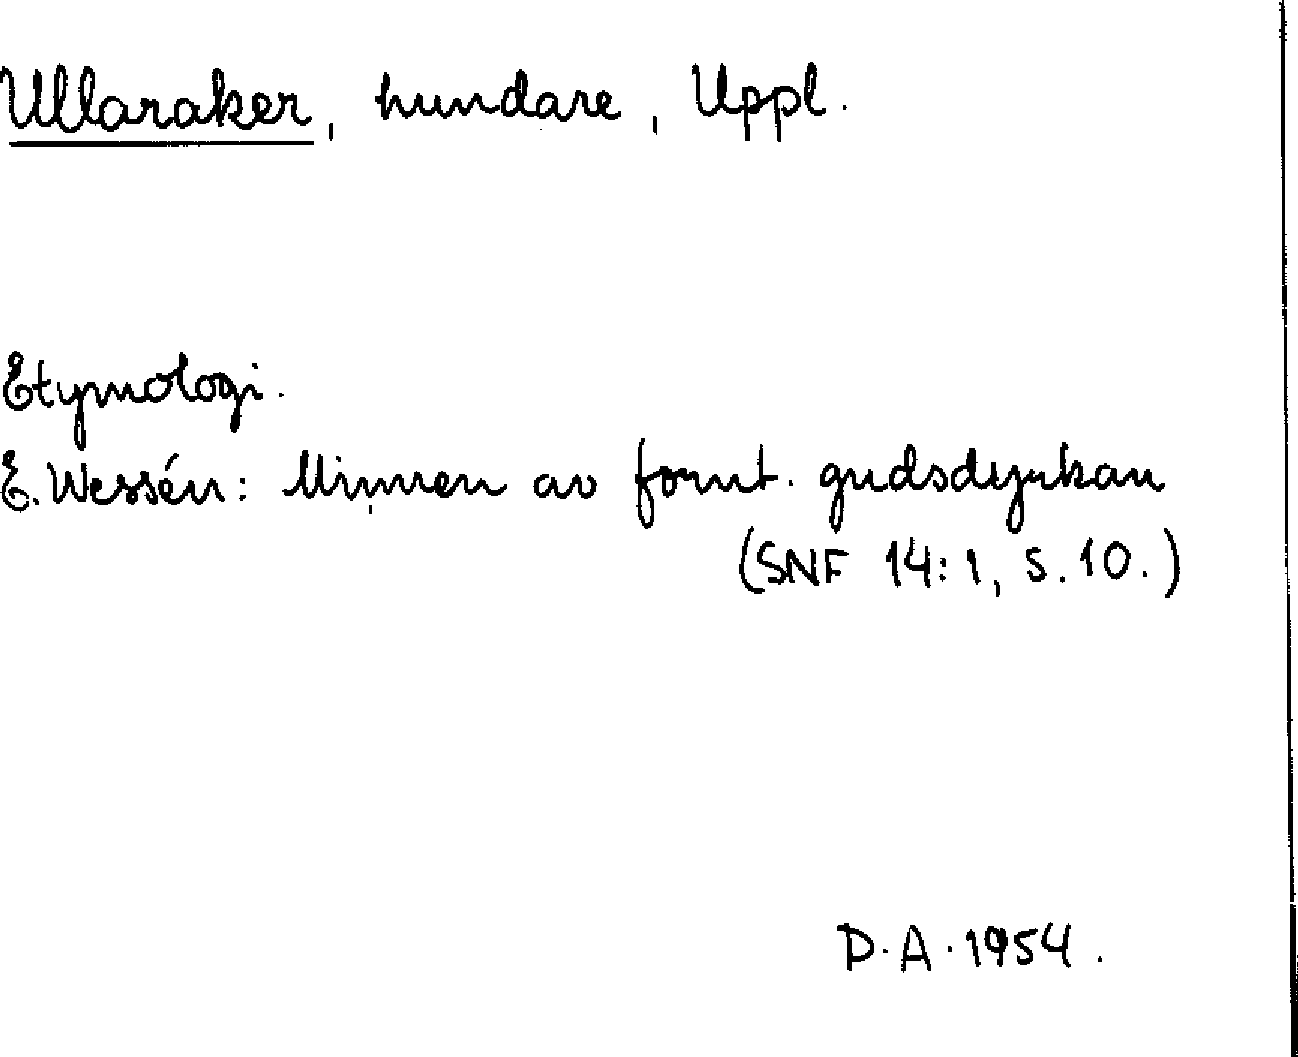 Ullaraker, hundare, Uppl.
Etymologi.
E. Wessén: Minnen av fornt. gudsdyrkan
(SNF 14:1, s. 10.)
D.A. 1954.